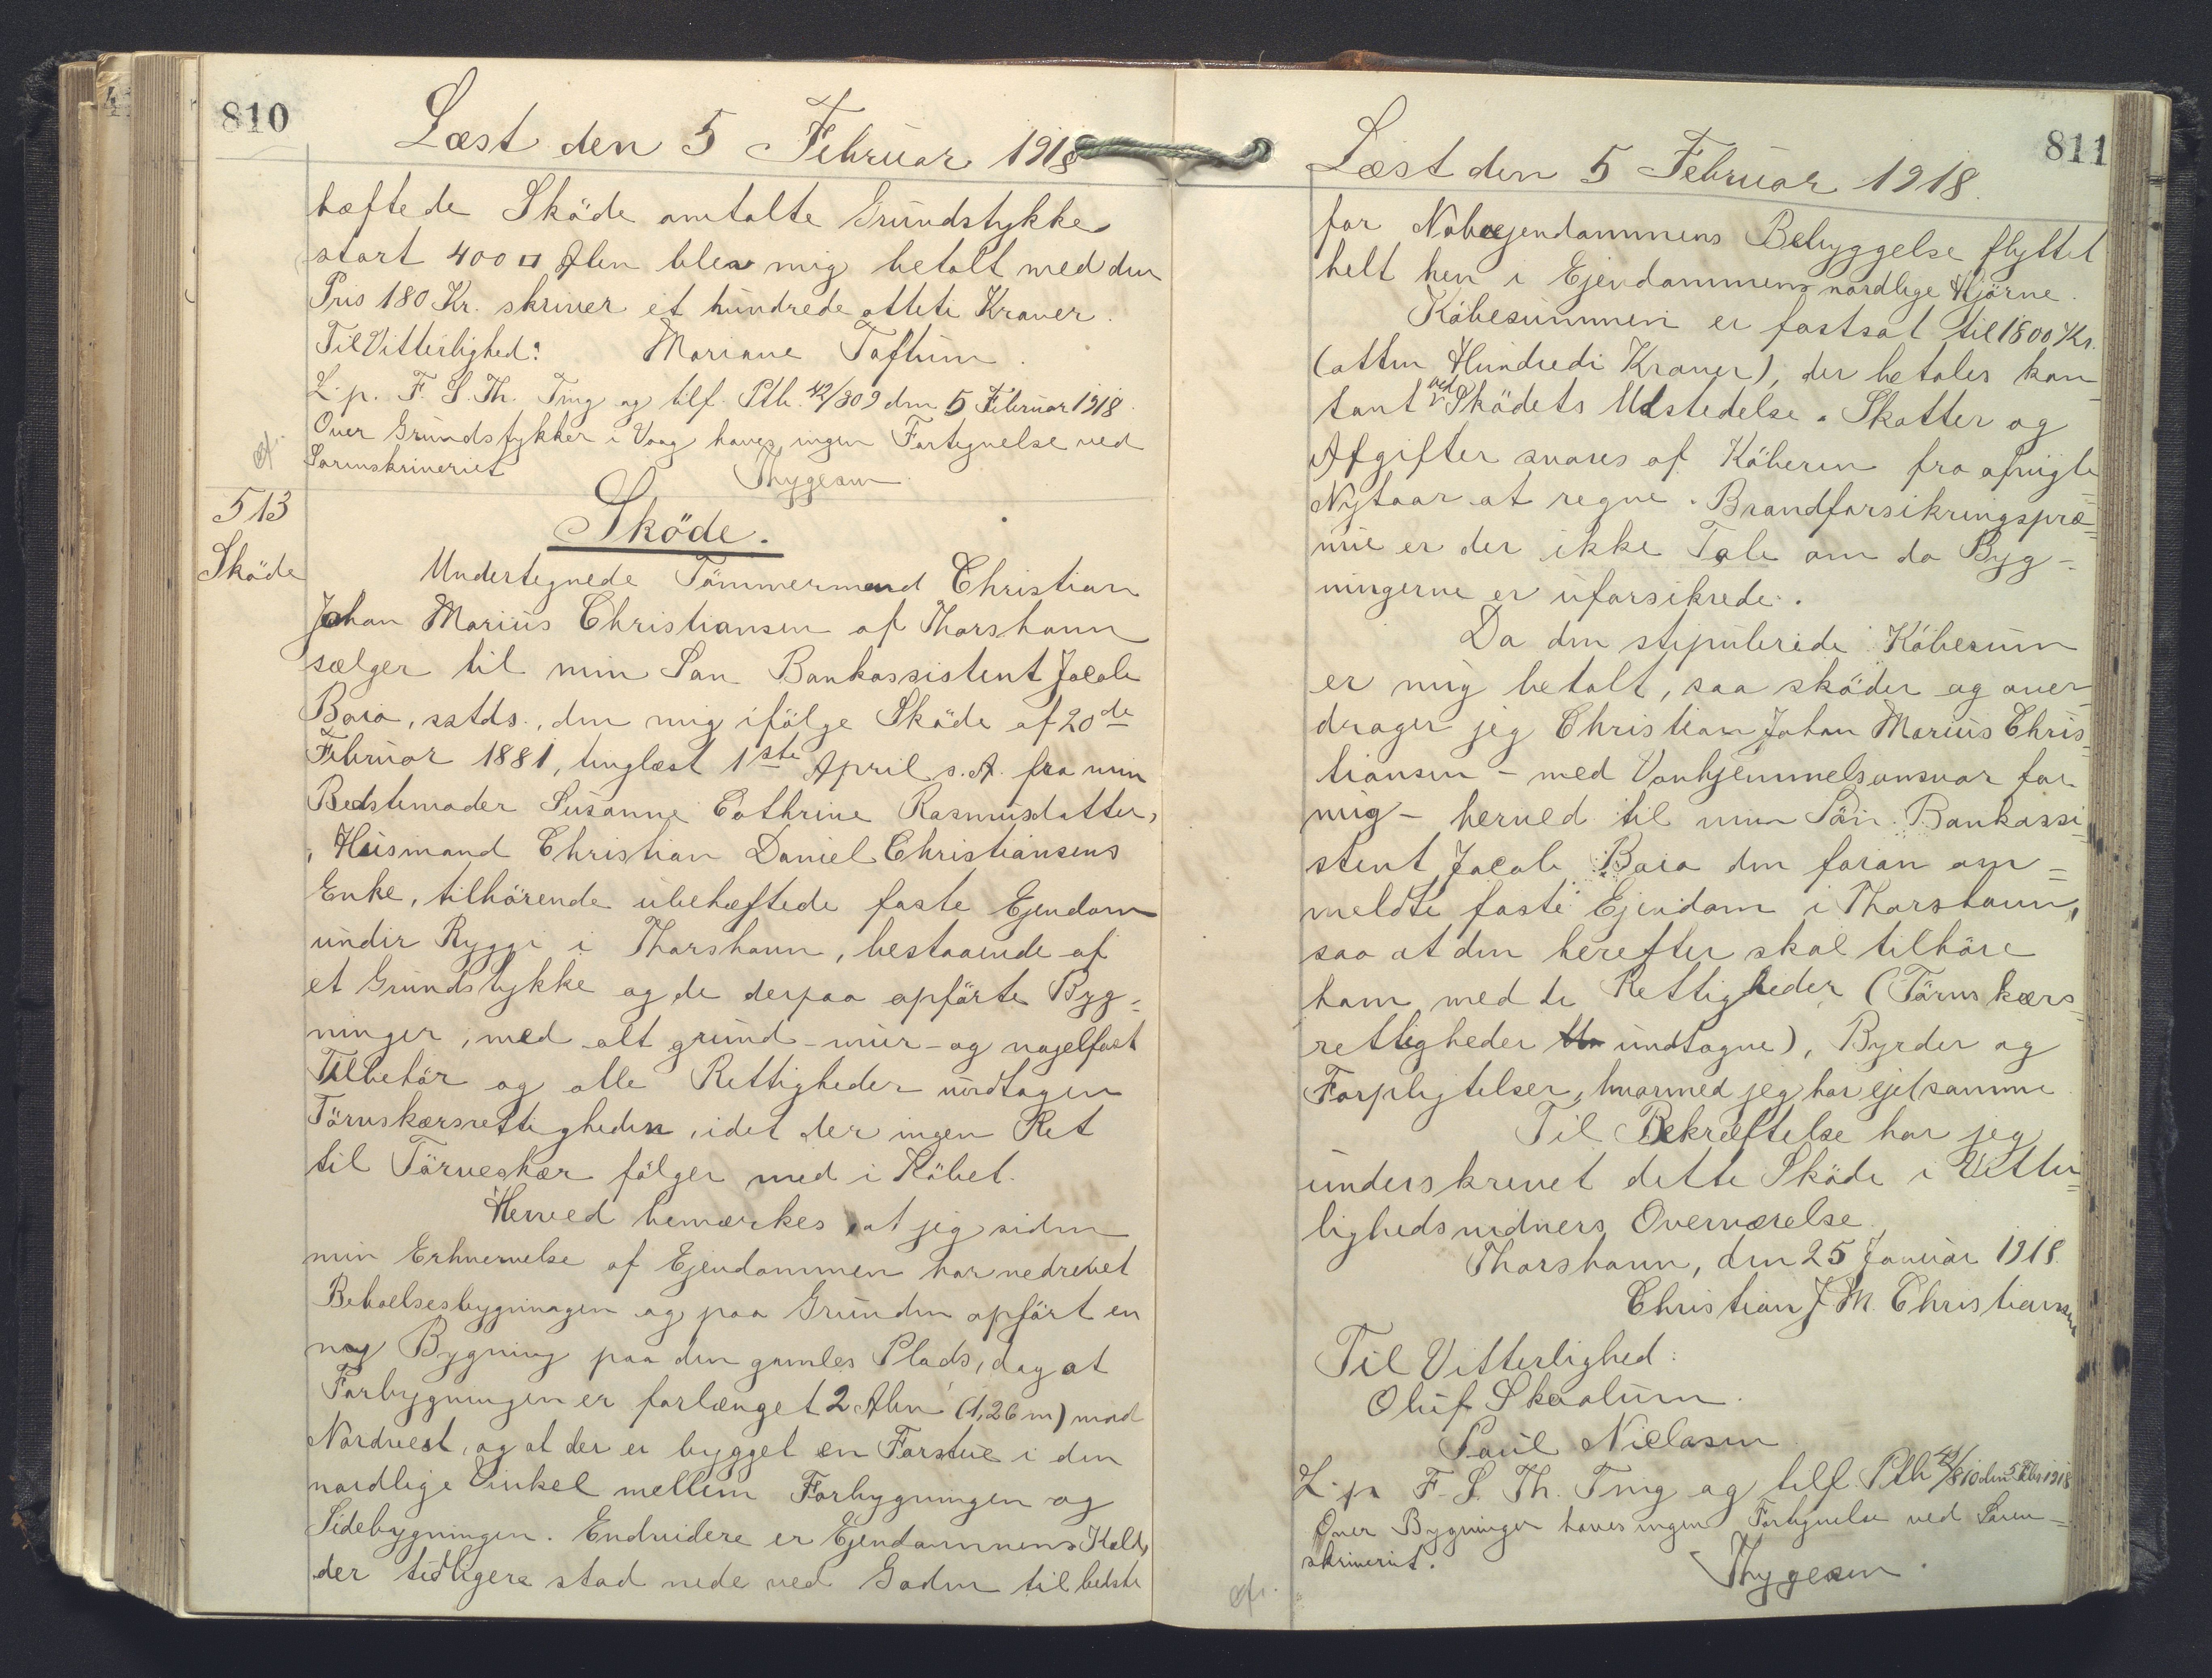 810
Læst den 5 Februar 1918
hæftede Sköde omtalte Grundstykke
stort 400 □ Alen blev mig betalt med den
Pris 180 Kr. skriver et hundrede otteti Kroner.
Til Vitterlighed: Mariane Toftum.
L. p. F. S. Th. Ting og tilf. Ptb. 42/809 den 5 Februar 1918.
Over Grundstykker i Vaag haves ingen Fortegnelse ved
Sorenskriveriet Thygesen.
cf.
513
Sköde
Sköde.
Undertegnede Tömmermand Christian
Johan Marius Christiansen af Thorshavn
sælger til min Sön Bankassistent Jacob
Baia, sstds., den mig ifölge Sköde af 20de
Februar 1881, tinglæst 1ste April s. A. fra min
Bedstemoder Susanne Cathrine Rasmusdatter,
, Husmand Christian Daniel Christiansens
Enke, tilhörende ubehæftede faste Ejendom
undir Ryggi i Thorshavn, bestaaende af
et Grundstykke og de derpaa opförte Byg=
ninger, med alt grund-mur- og nagelfast
Tilbehör og alle Rettigheder undtagen
Törveskærsrettigheden, idet der ingen Ret
til Törveskær fölger med i Köbet.
Herved bemærkes at jeg siden
min Erhvervelse af Ejendommen har nedrevet
Beboelsesbygningen og paa Grunden opfört en
ny Bygning paa den gamles Plads, dog at
Forbygningen er forlænget 2 Alen (1,26 m) mod
Nordvest, og at der er bygget en Forstue i den
nordlige Vinkel mellem Forbygningen og
Sidebygningen. Endvidere er Ejendommens Hald,
der tidligere stod nede ved Gaden til bedste
811
Læst den 5 Februar 1918.
for Naboejendommens Bebyggelse flyttet
helt hen i Ejendommens nordlige Hjörne.
Köbesummen er fastsat til 1800 Kr.
(atten Hundrede Kroner), der betales kon=
tant ved Sködets Udstedelse. Skatter og
Afgifter svares af Köberen fra afvigte
Nytaar at regne. Brandforsikringspræ=
mie er der ikke Tale om da Byg=
ningerne er uforsikrede.
Da den stipulerede Köbesum
er mig betalt, saa sköder og over=
drager jeg Christian Johan Marius Chris=
tiansen - med Vanhjemmelsansvar for
mig - herved til min Sön Bankassi=
stent Jacob Baia den foran om=
meldte faste Ejendom i Thorshavn,
saa at den herefter skal tilhöre
ham med de Rettigheder (Törveskærs=
rettigheder undtagne), Byrder og
Forpligtelser, hvormed jeg har ejet samme
Til Bekræftelse har jeg
underskrevet dette Sköde i Vitter=
lighedsvidners Overværelse.
Thorshavn, den 25 Januar 1918.
Christian J. M. Christiansen
Til Vitterlighed:
Oluf Skaalum.
Poul Nielsen.
L. p. F. S. Th. Ting og tilf. Ptb 42/810 den 5 Febr 1918
Over Bygninger haves ingen Fortegnelse ved Soren=
skriveriet. Thygesen.
cf.